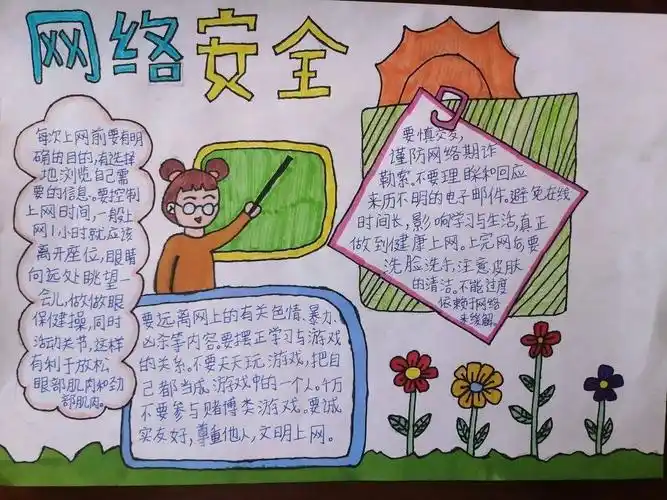 网络安全
每次上网前要有明
确的目的,有选择
地浏览自己需
要的信息。要控制
上网时间,一般上
网1小时就应该
离开座位,眼睛
向远处眺望一
会儿,做做眼
保健操,同时
活动关节,这样
有利于放松
眼部肌肉和动
部肌肉。
要慎交友,
谨防网络期诈
勒索。不要理睬和回应
来历不明的电子邮件。避免在线
时间长,影响学习与生活,真正
做到健康上网。上完网后要
洗脸洗手,注意皮肤
的清洁。不能过度
依赖于网络
来缓解。
要远离网上的有关色情、暴力、
凶杀等内容。要摆正学习与游戏
的关系。不要天天玩游戏,把自
己都当成游戏中的一个人。千万
不要参与赌博类游戏。要诚
实友好,尊重他人,文明上网。